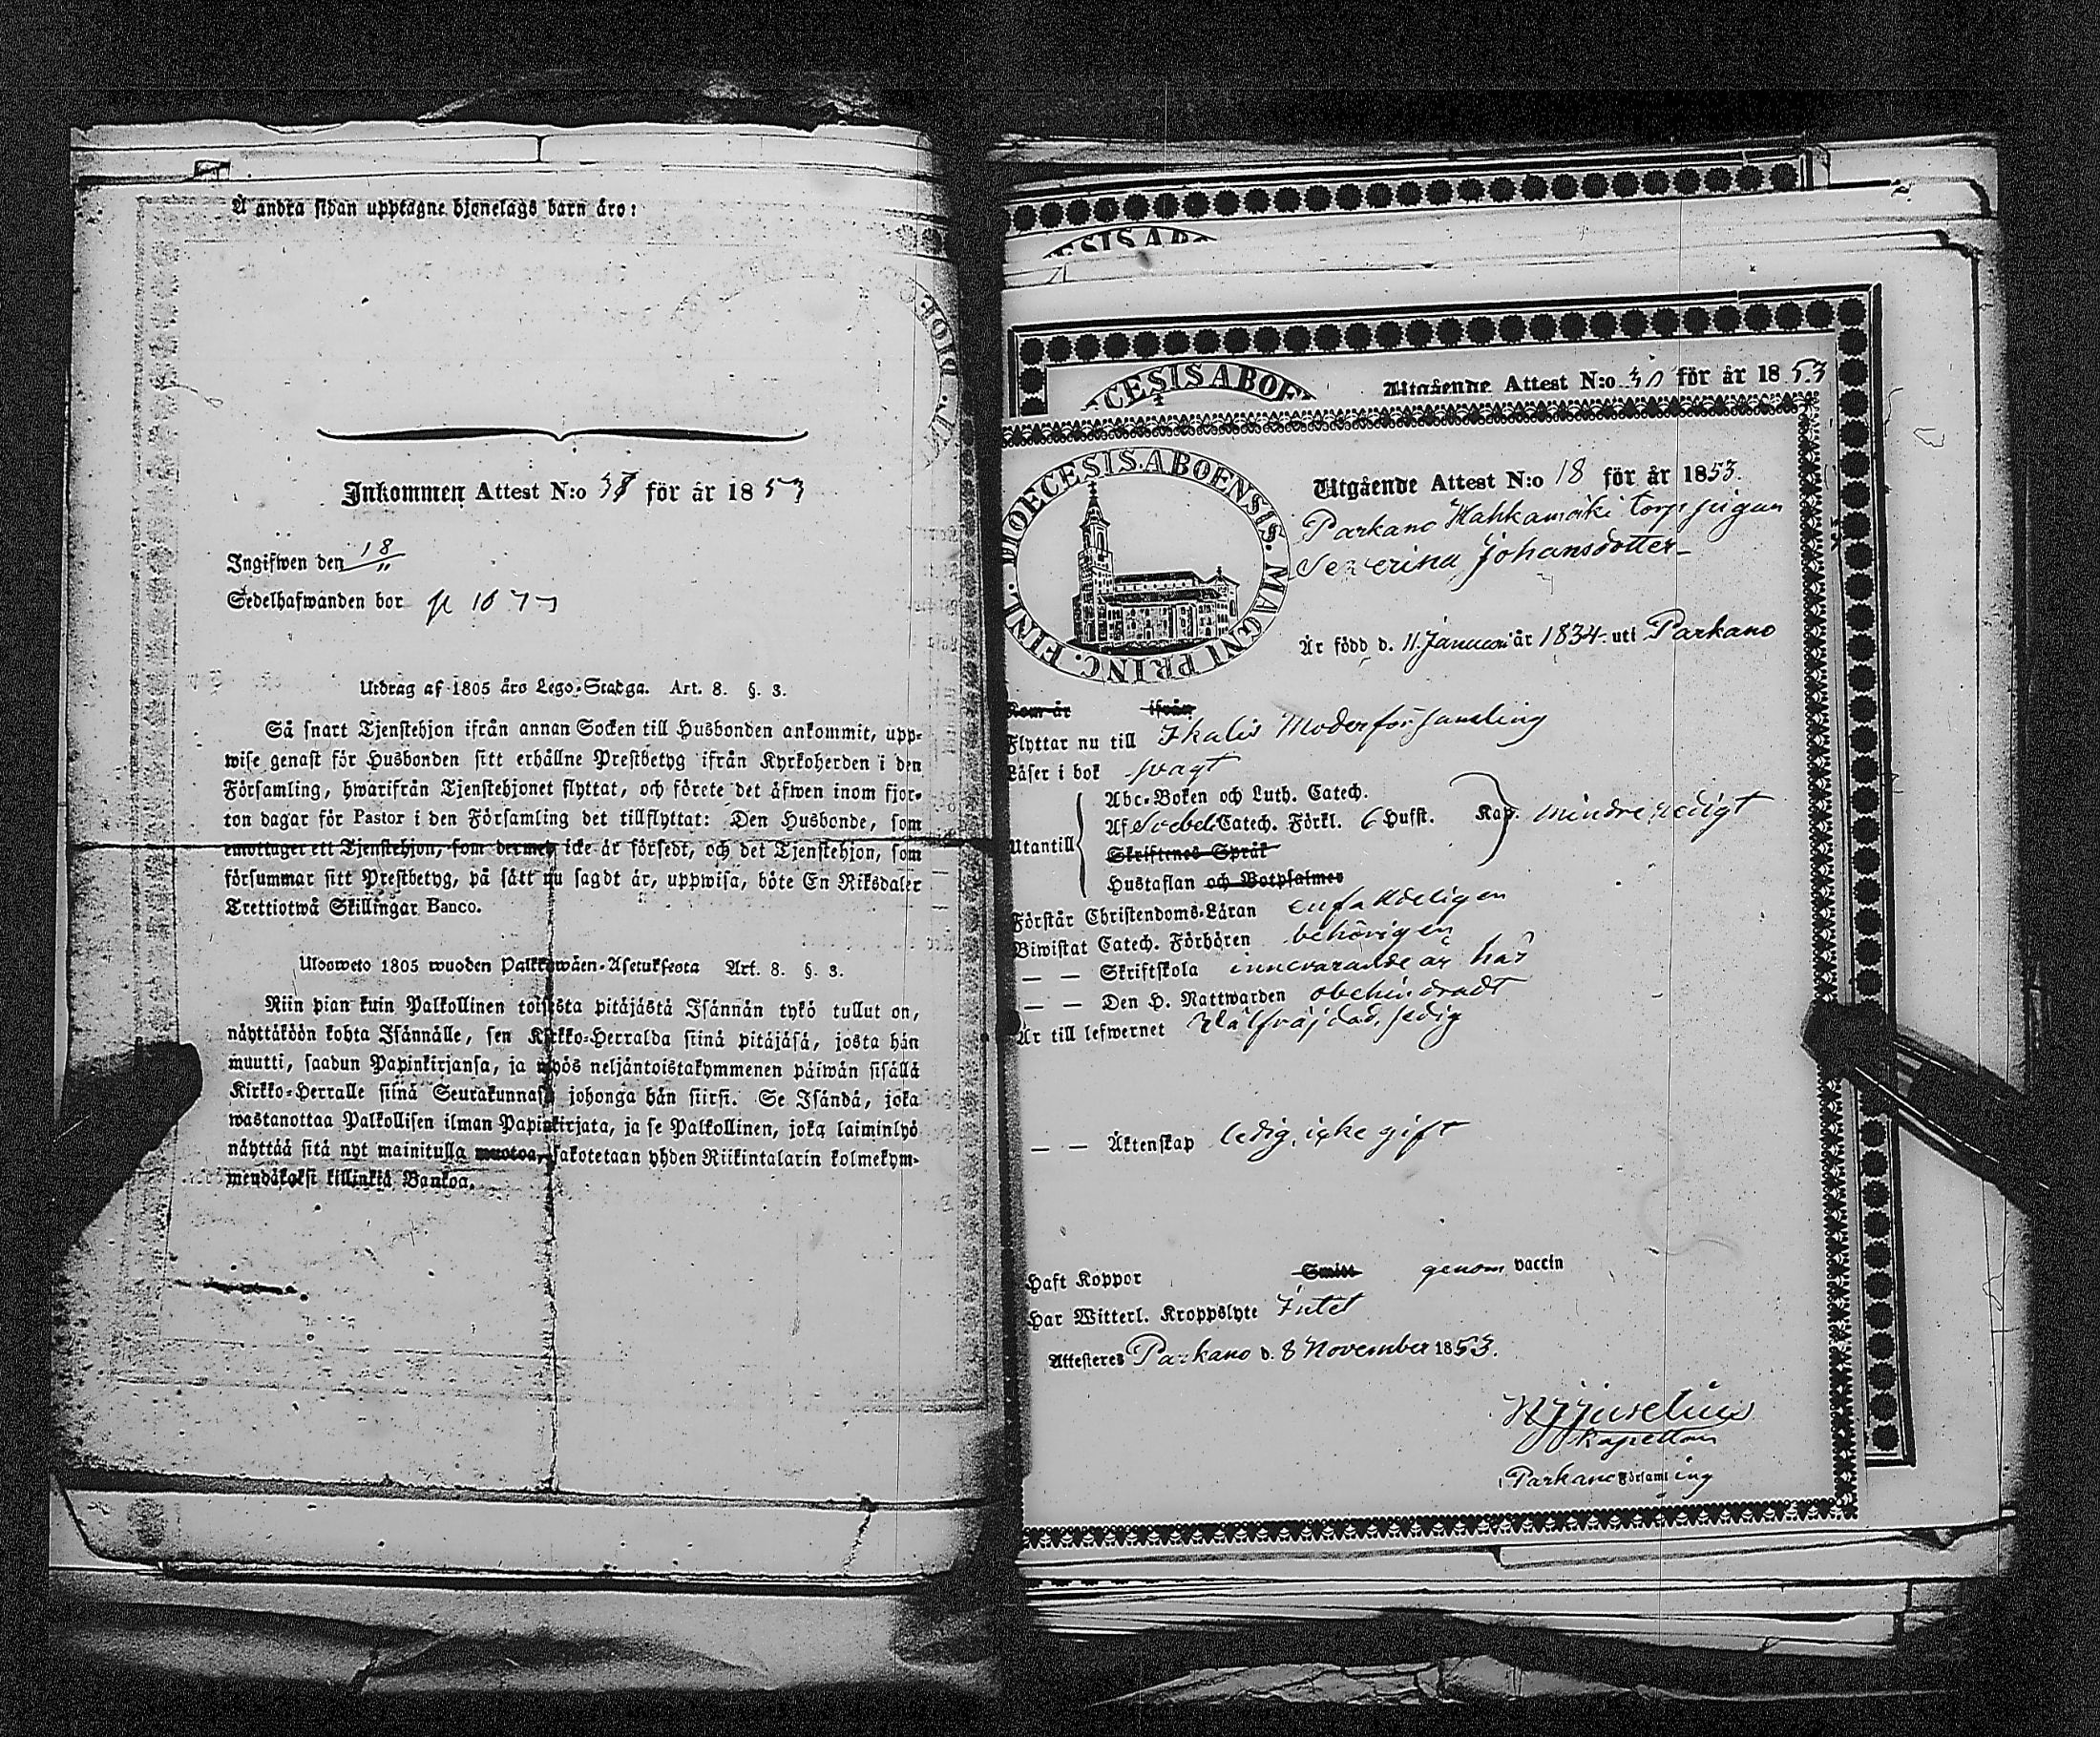 Å andra sidan upptagne hjonelags barn äro:
Inkommen Attest N:o 38 för år 1853
Ingifwen den 18/11
Sedelhafwanden bor p
Utdrag af 1805 års Lego-Stadga. Art. 8. §. 3.
Så snart Tjenstehjon ifrån annan Socken till Husbonden ankommit, upp-
wise genast för Husbonden sitt erhållne Prestbetyg ifrån Kyrkoherden i den
Församling, hwarifrån Tjenstehjonet flyttat, och förete det äfwen inom fjor-
ton dagar för Pastor i den Församling det tillflyttat: Den Husbonde, som
emottager ett Tjenstehjon, som dermed icke är försedt, och det Tjenstehjon, som
försummar sitt Prestbetyg, på sått nu sagdt är, uppwisa, böte En Riksdaler
Trettiotwå Skillingar Banco.
Ulosweto 1805 wuoden Palkkawäen-Asetuksesta Art. 8. §. 3.
Niin pian kuin Palkollinen toisesta pitäjästä Isännän tykö tullut on,
näyttäköön kohta Isännälle, sen Kirkko-Herralda siinä pitäjäsä, josta hän
muutti, saadun Papinkirjansa, ja myös neljäntoistakymmenen päiwän sisällä
Kirkko-Herralle siinä Seurakunnasa johonga hän siirsi. Se Isändä, joka
wastanottaa Palkollisen ilman Papinkirjata, ja se Palkollinen, joka laiminlyö
näyttää sitä nyt mainitulla muotoa, sakotetaan yhden Riikintalarin kolmekym-
mendäkaksi killinkiä Bankoa.
ESIS AB
CESIS ABOE
Utgående Attest N:o 30 för år 1853
DIOECESIS. ABOENSIS. MAGNI PRINC. FINL.
Utgående Attest N:o 18 för år 1853.
Parkano Kahkamäki torp pigan
Severina Johansdotter
Är född d. 11 Januari år 1834 uti Parkano
Kom år ifrån
Flyttar nu till Ikalis Moderförsamling
Läser i bok svagt
Utantill
Abc-Boken och Luth. Catech.
Af Svebel. Catech. Förkl. 6 Hufst. Kap. mindre redigt
Skriftenes Språk
Hustaflan och Botpsalmer
Förstår Christendoms-Läran enfaldeligen
Biwistat Catech. Förhören behörigen
— — Skriftskola innevarande år här
— — Den H. Nattwarden obehindradt
Är till lefwernet välfräjdad, sedig
— — Äktenskap ledig, icke gift
Haft Koppor Smitt genom vaccin
Har Witterl. Kroppslyte Intet
Attesteres Parkano d. 8 November 1853.
Juselius
Kapellan
i Parkano Församling